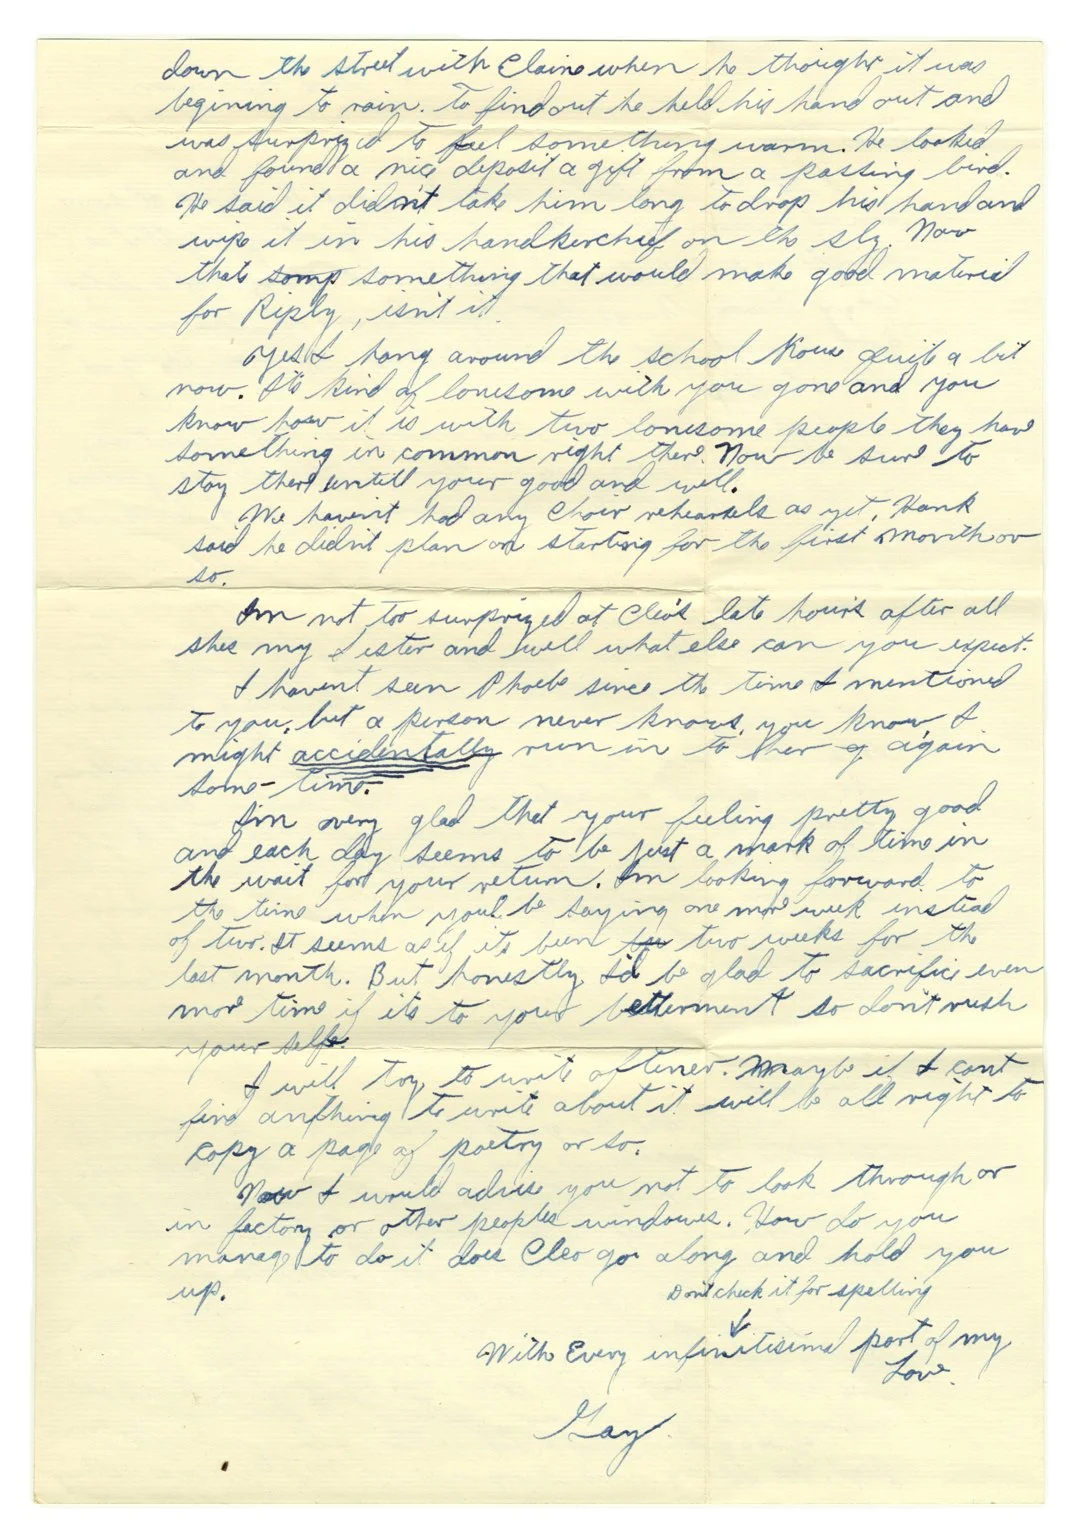 down the street with Elaine when he thought it was
begining to rain. To find out he held his hand out and
was surprized to feel something warm. He looked
and found a nice deposit a gift from a passing bird.
He said it didn't take him long to drop his hand and
wipe it in his handkerchief on the sly. Now
thats something that would make good material
for Riply, isn't it
Yes I hang around the school House quite a bit
now. It's kind of lonesome with you gone and you
know how it is with two lonesome people they have
something in common right there. Now be sure to
stay there untill your good and well.
We haven't had any Choir rehearsels as yet, Hank
said he didn't plan on starting for the first month or
so.
Im not too surprized at Cleo's late hours after all
shes my sister and well what else can you expect.
I havent seen Phoebe since the time I mentioned
to you, but a person never knows, you know I
might accidentally run in to her again
some-time.
Im very glad that your feeling pretty good
and each day seems to be just a mark of time in
the wait for your return. Im looking forward to
the time when youl be saying one more week instead
of two. It seems as if its been two weeks for the
last month. But honestly I'd be glad to sacrifice even
more time if its to your betterment so don't rush
your self.
I will try to write oftener. Maybe if I cant
find anything to write about it will be all right to
copy a page of poetry or so.
Now I would advise you not to look through or
in factory or other peoples windows. How do you
manage to do it does Cleo go along and hold you
up.
Don't check it for spelling
With Every infinitisimal part of my
Love.
Gay